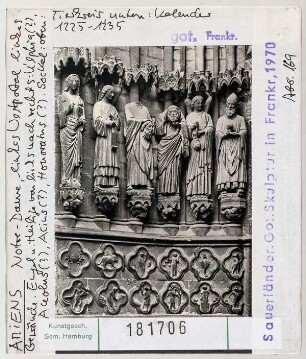 Tierkreis unten: Kalender
1225-1235
got. Frankr.
AMIENS Notre-Dame, linkes Westportal linkes
Gewände. Engel, Heilige von links nach rechts: Ulphia(?),
Aceolus(?), Acius(?), Honoratus(?). Sockel:
Sauerländer, Got. Skulptur in Frankr, 1970
Abb. 169
Kunstgesch.
Sem. Hamburg
181706